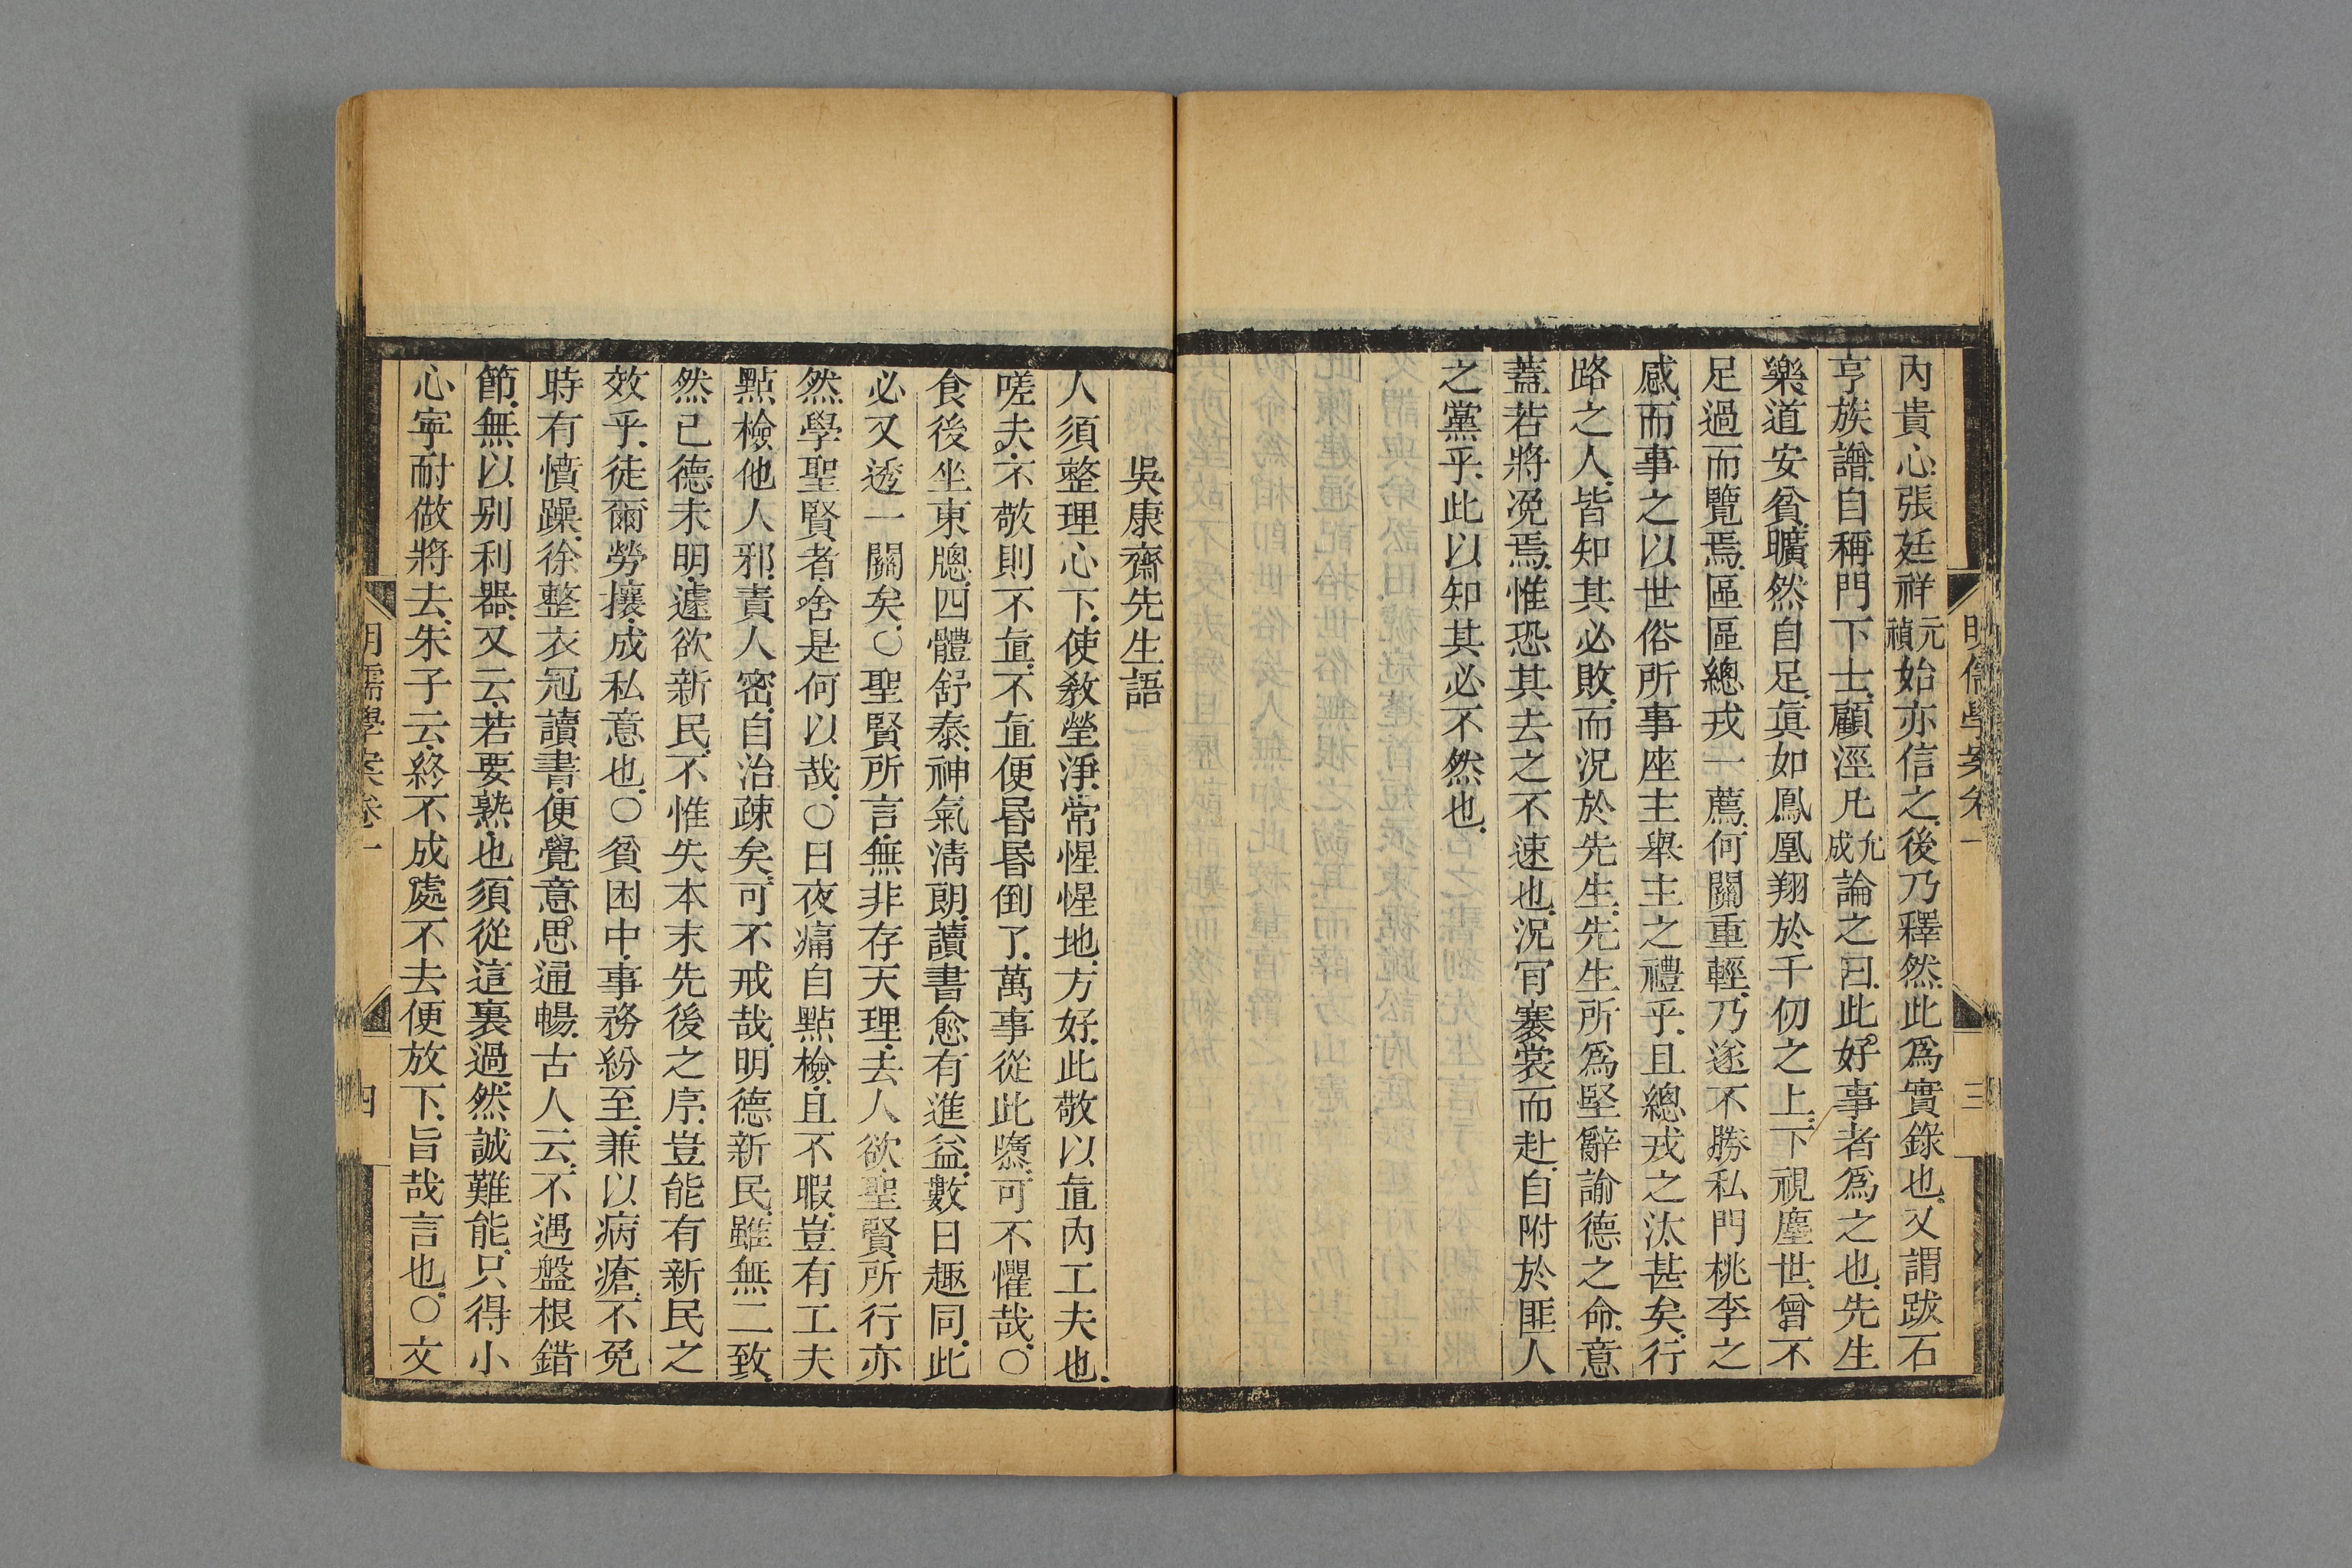 明儒學案卷一
三
內貴心張廷祥元禎始亦信之後乃釋然此爲實錄也又謂跋石
亨族譜自稱門下士顧涇凡允成論之曰此好事者爲之也先生
樂道安貧曠然自足眞如鳳凰翔於千仞之上下視塵世曾不
足過而覽焉區區總戎一薦何關重輕乃遂不勝私門桃李之
感而事之以世俗所事座主舉主之禮乎且總戎之汰甚矣行
路之人皆知其必敗而況於先生先生所爲堅辭諭德之命意
蓋若將浼焉惟恐其去之不速也況肎褰裳而赴自附於匪人
之黨乎此以知其必不然也
吳康齋先生語
人須整理心下使敎瑩淨常惺惺地方好此敬以直內工夫也
嗟夫不敬則不直不直便昬昬倒了萬事從此隳可不懼哉○
食後坐東牕四體舒泰神氣淸朗讀書愈有進益數日趣同此
必又透一關矣○聖賢所言無非存天理去人欲聖賢所行亦
然學聖賢者舍是何以哉○日夜痛自點檢且不暇豈有工夫
點檢他人邪責人密自治疎矣可不戒哉明德新民雖無二致
然已德未明遽欲新民不惟失本末先後之序豈能有新民之
效乎徒爾勞攘成私意也○貧困中事務紛至兼以病瘡不免
時有憤躁徐整衣冠讀書便覺意思通暢古人云不遇盤根錯
節無以別利器又云若要熟也須從這裏過然誠難能只得小
心寧耐做將去朱子云終不成處不去便放下旨哉言也○文
明儒學案卷一
四